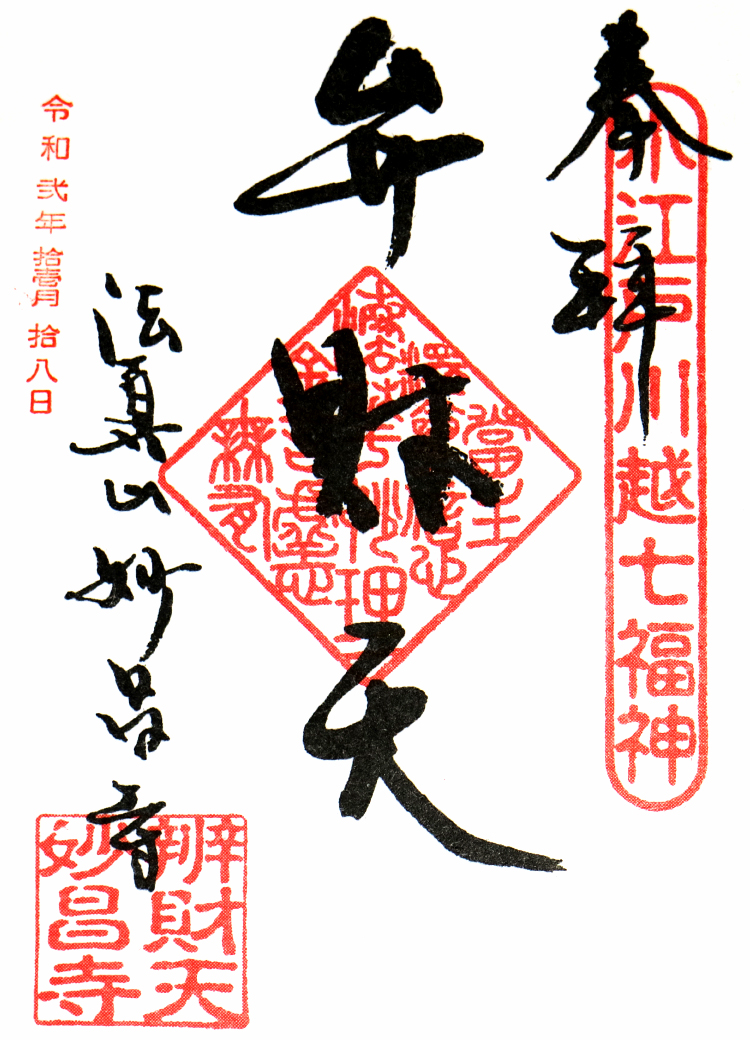 奉拝
小江戸川越七福神
弁財天
法眞山妙昌寺
令和弐年拾壱月拾八日
辨財天
妙昌寺